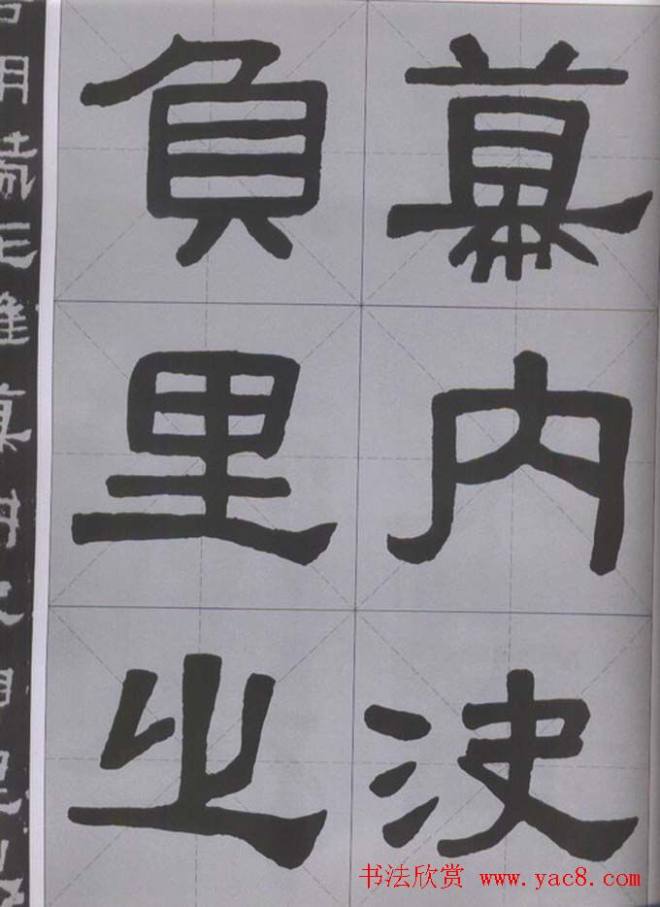 幕内决
負里之
书法欣赏 www.yac8.com